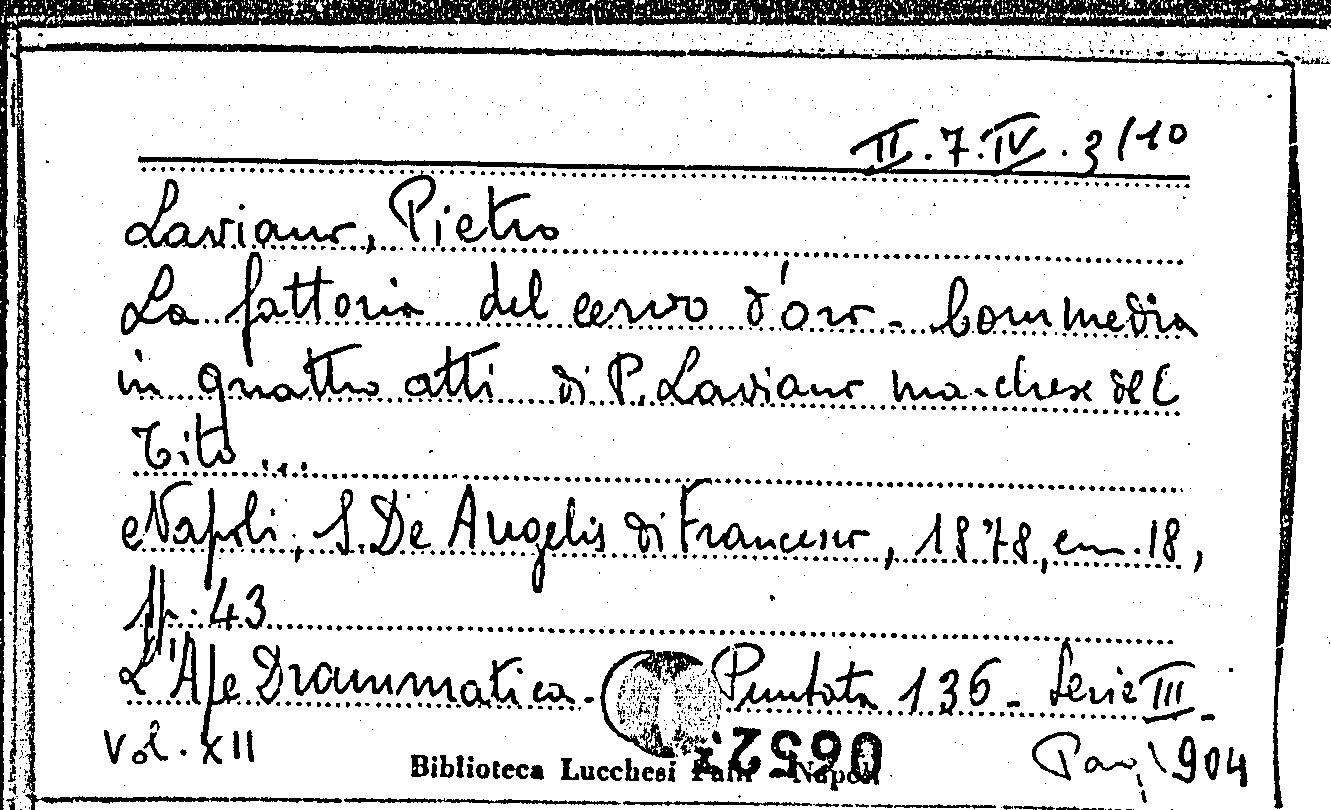 II.7.IV.3/10
Laviano, Pietro
La fattoria del cervo d'oro - Commedia
in quattro atti di P. Laviano marchese del
Tito ...
Napoli, S. De Angelis di Francesco, 1878, cm. 18,
pp. 43
L'Ape Drammatica - Puntata 136 - Serie III -
Vol. XII
Biblioteca Lucchesi Palli - Napoli
904